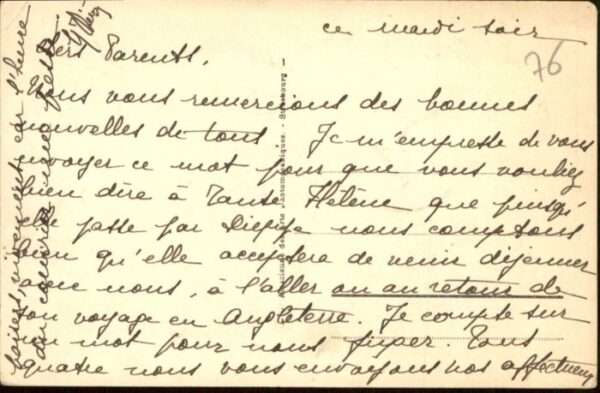 ce mardi soir
76
Chers Parents,
Nous vous remercions des bonnes
nouvelles de tous. Je m'empresse de vous
envoyer ce mot pour que vous vouliez
bien dire à Tante Hélène que puisqu'
elle passe par Dieppe nous comptons
bien qu'elle acceptera de venir déjeuner
avec nous, à l'aller ou au retour de
son voyage en Angleterre. Je compte sur
un mot pour nous fixer. Tous
quatre nous vous envoyons nos affectueux
baisers, vivement car l'heure
du courrier